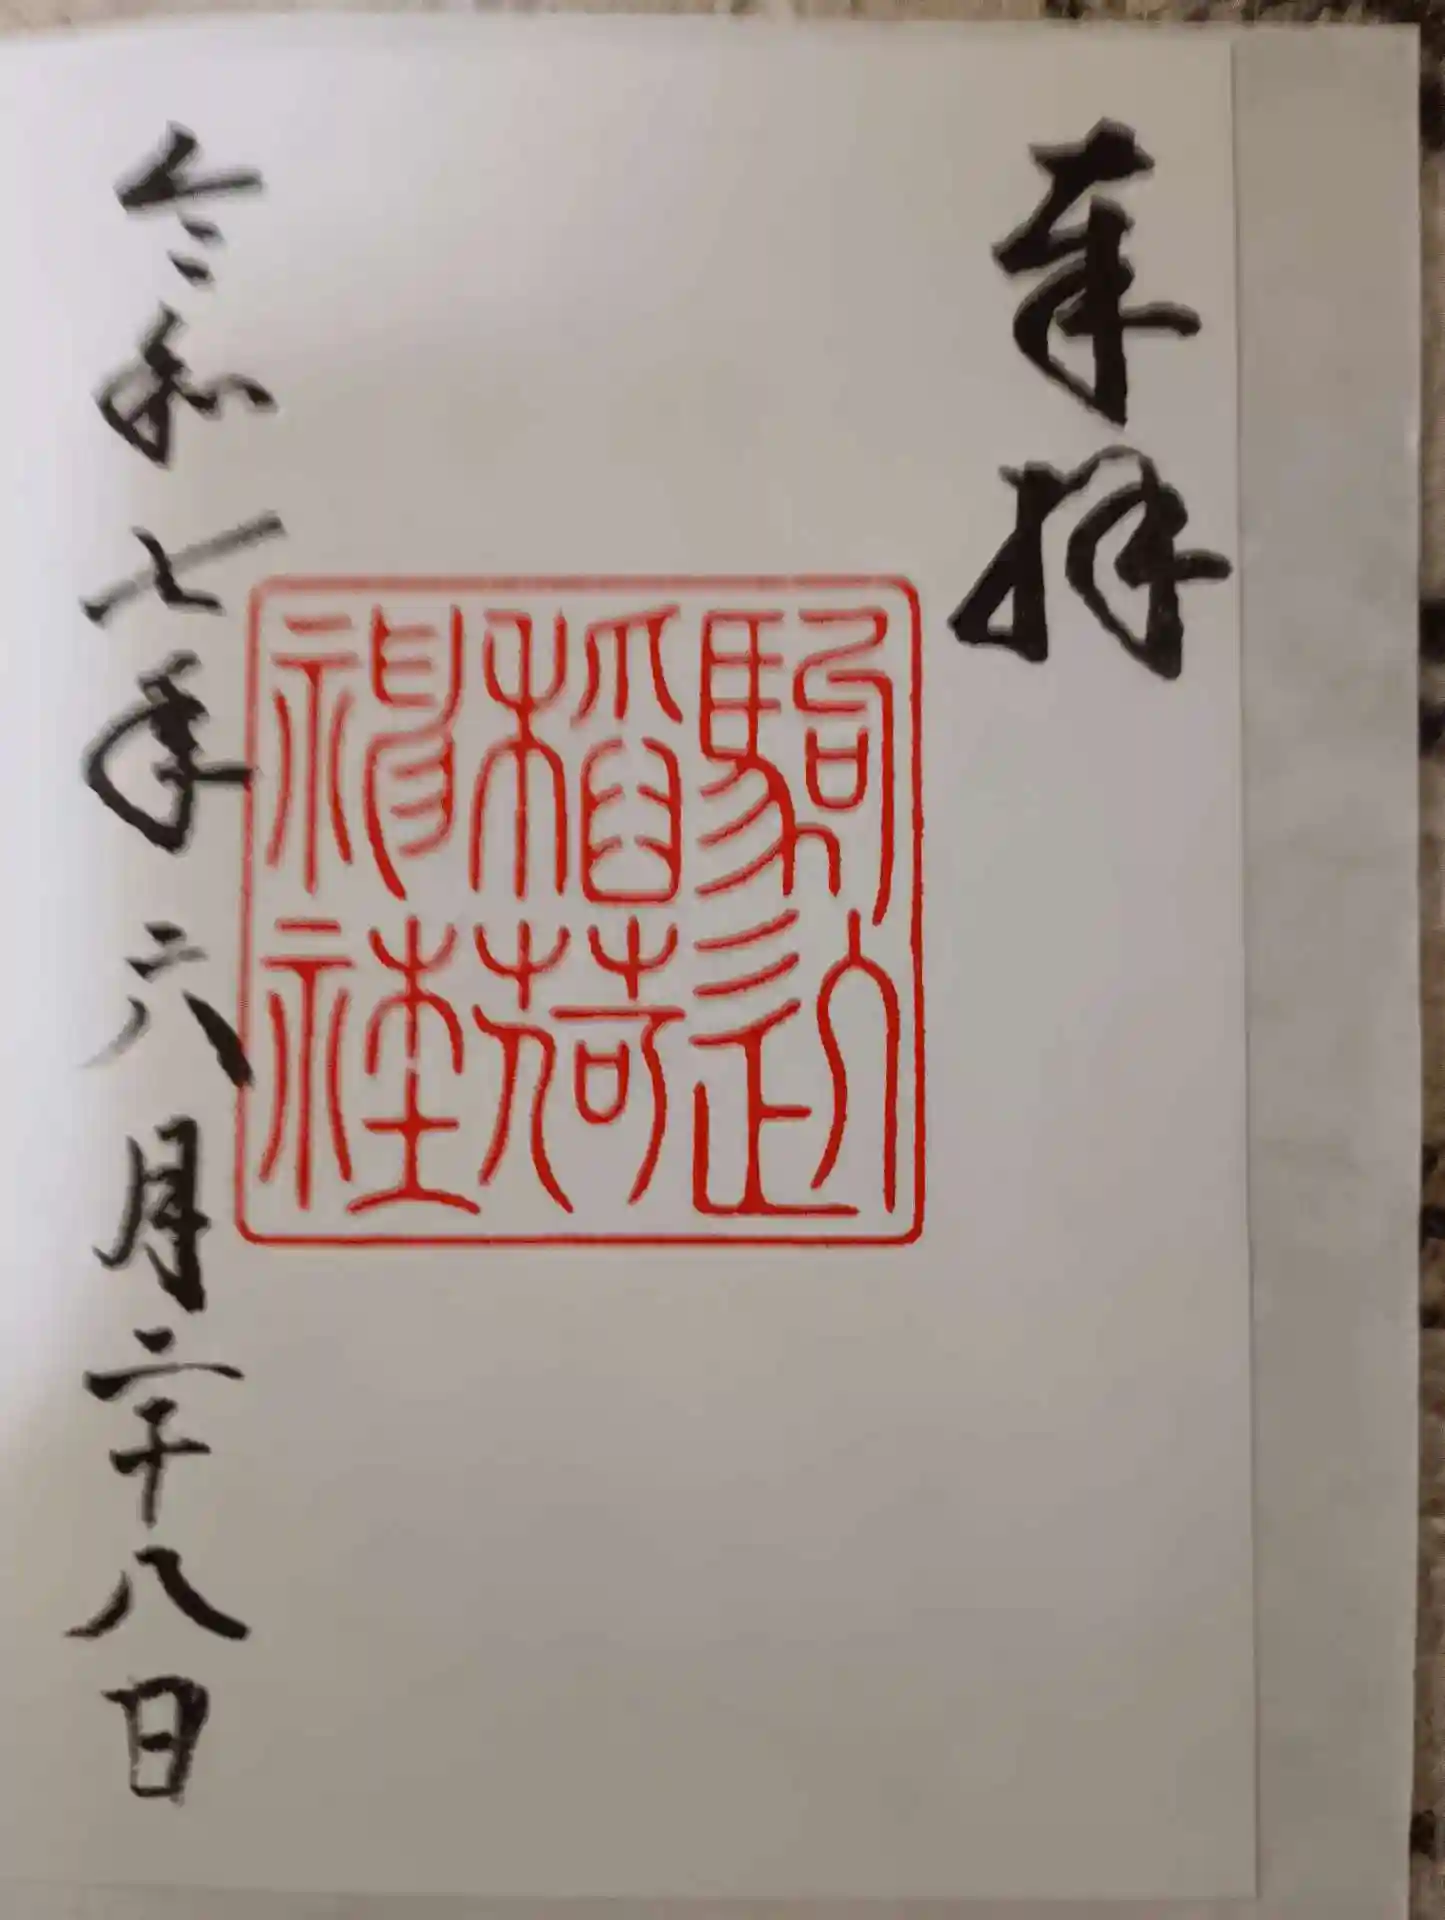 奉拝
駒込
稲荷
神社
令和七年六月二十八日